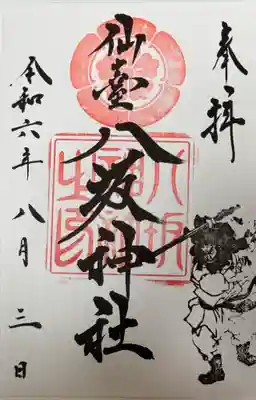 奉拝
仙臺八坂神社
令和六年八月三日